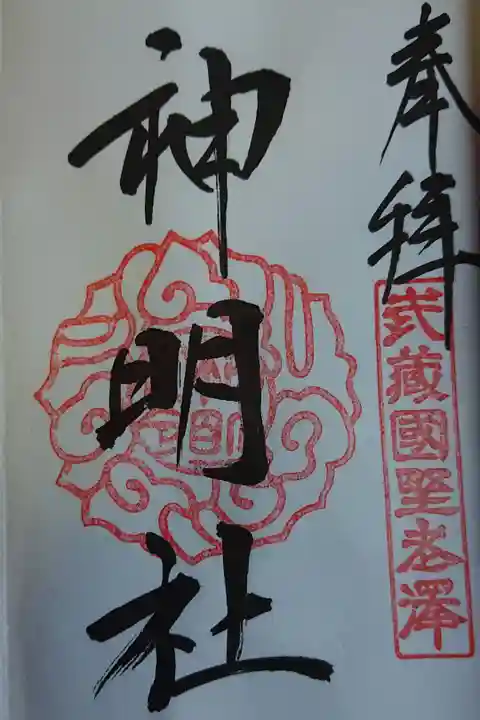 奉拝
武藏國埜老澤
神明社